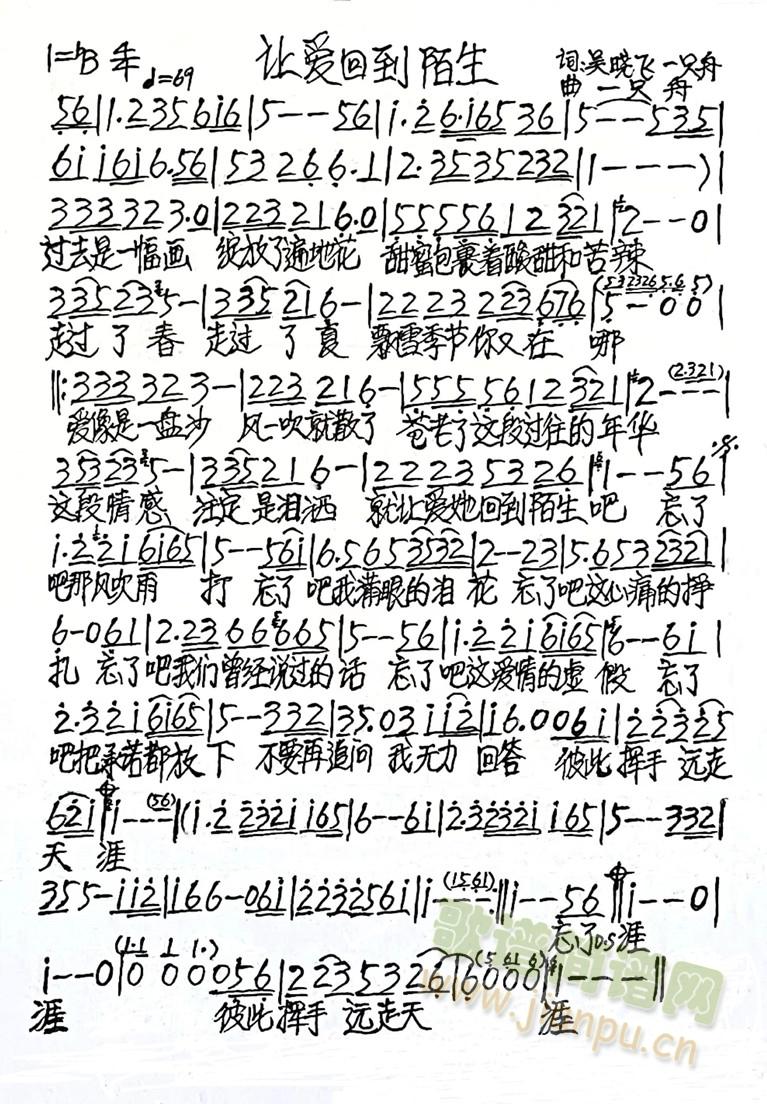 1=♭B 4/4 ♩=69 让爱回到陌生 词:吴晓飞 一只舟
曲 一只舟
56|1.235616|5--56|1.26.16536|5--535|
611616.56|53266.1|2.3535232|1---)|
3333323.0|2232216.0|555561 2321|2--0|
过去是一幅画 绽放了遍地花 甜蜜包裹着酸甜和苦辣
335235-|335216-|2223223676|5-00|
走过了春 走过了夏 飘雪季节你又在哪
‖:333323-|223216-|555561 2321|2---(2.321)|
爱像是一盘沙 风一吹就散了 苍老了这段过往的年华
353235-|335216-|22235326|1--56|
这段情感 注定是泪洒 就让爱她回到陌生吧 忘了
1.2216165|5--561|6.5653532|2--23|5.6532321|
吧那风吹雨 打 忘了吧我满眼的泪 花 忘了吧这心痛的挣
6-061|2.2366665|5--56|1.2216165|6--61|
扎 忘了吧我们曾经说过的话 忘了吧这爱情的虚假 忘了
2.3216165|5--332|35.03112|16.0061|22325
吧把承诺都放下 不要再追问 我无力回答 彼此挥手 远走
621|1---(56)|(1.22321165|6--61|2.32321165|5--332|
天 涯
355-112|166-061|2232561|1---(1561):‖1--56‖1--0|
忘了 D.S 涯
1--0|0000056|22353266|6000|1---‖
涯 彼此挥手 远走天 涯
歌谱简谱网
www.jianpu.cn